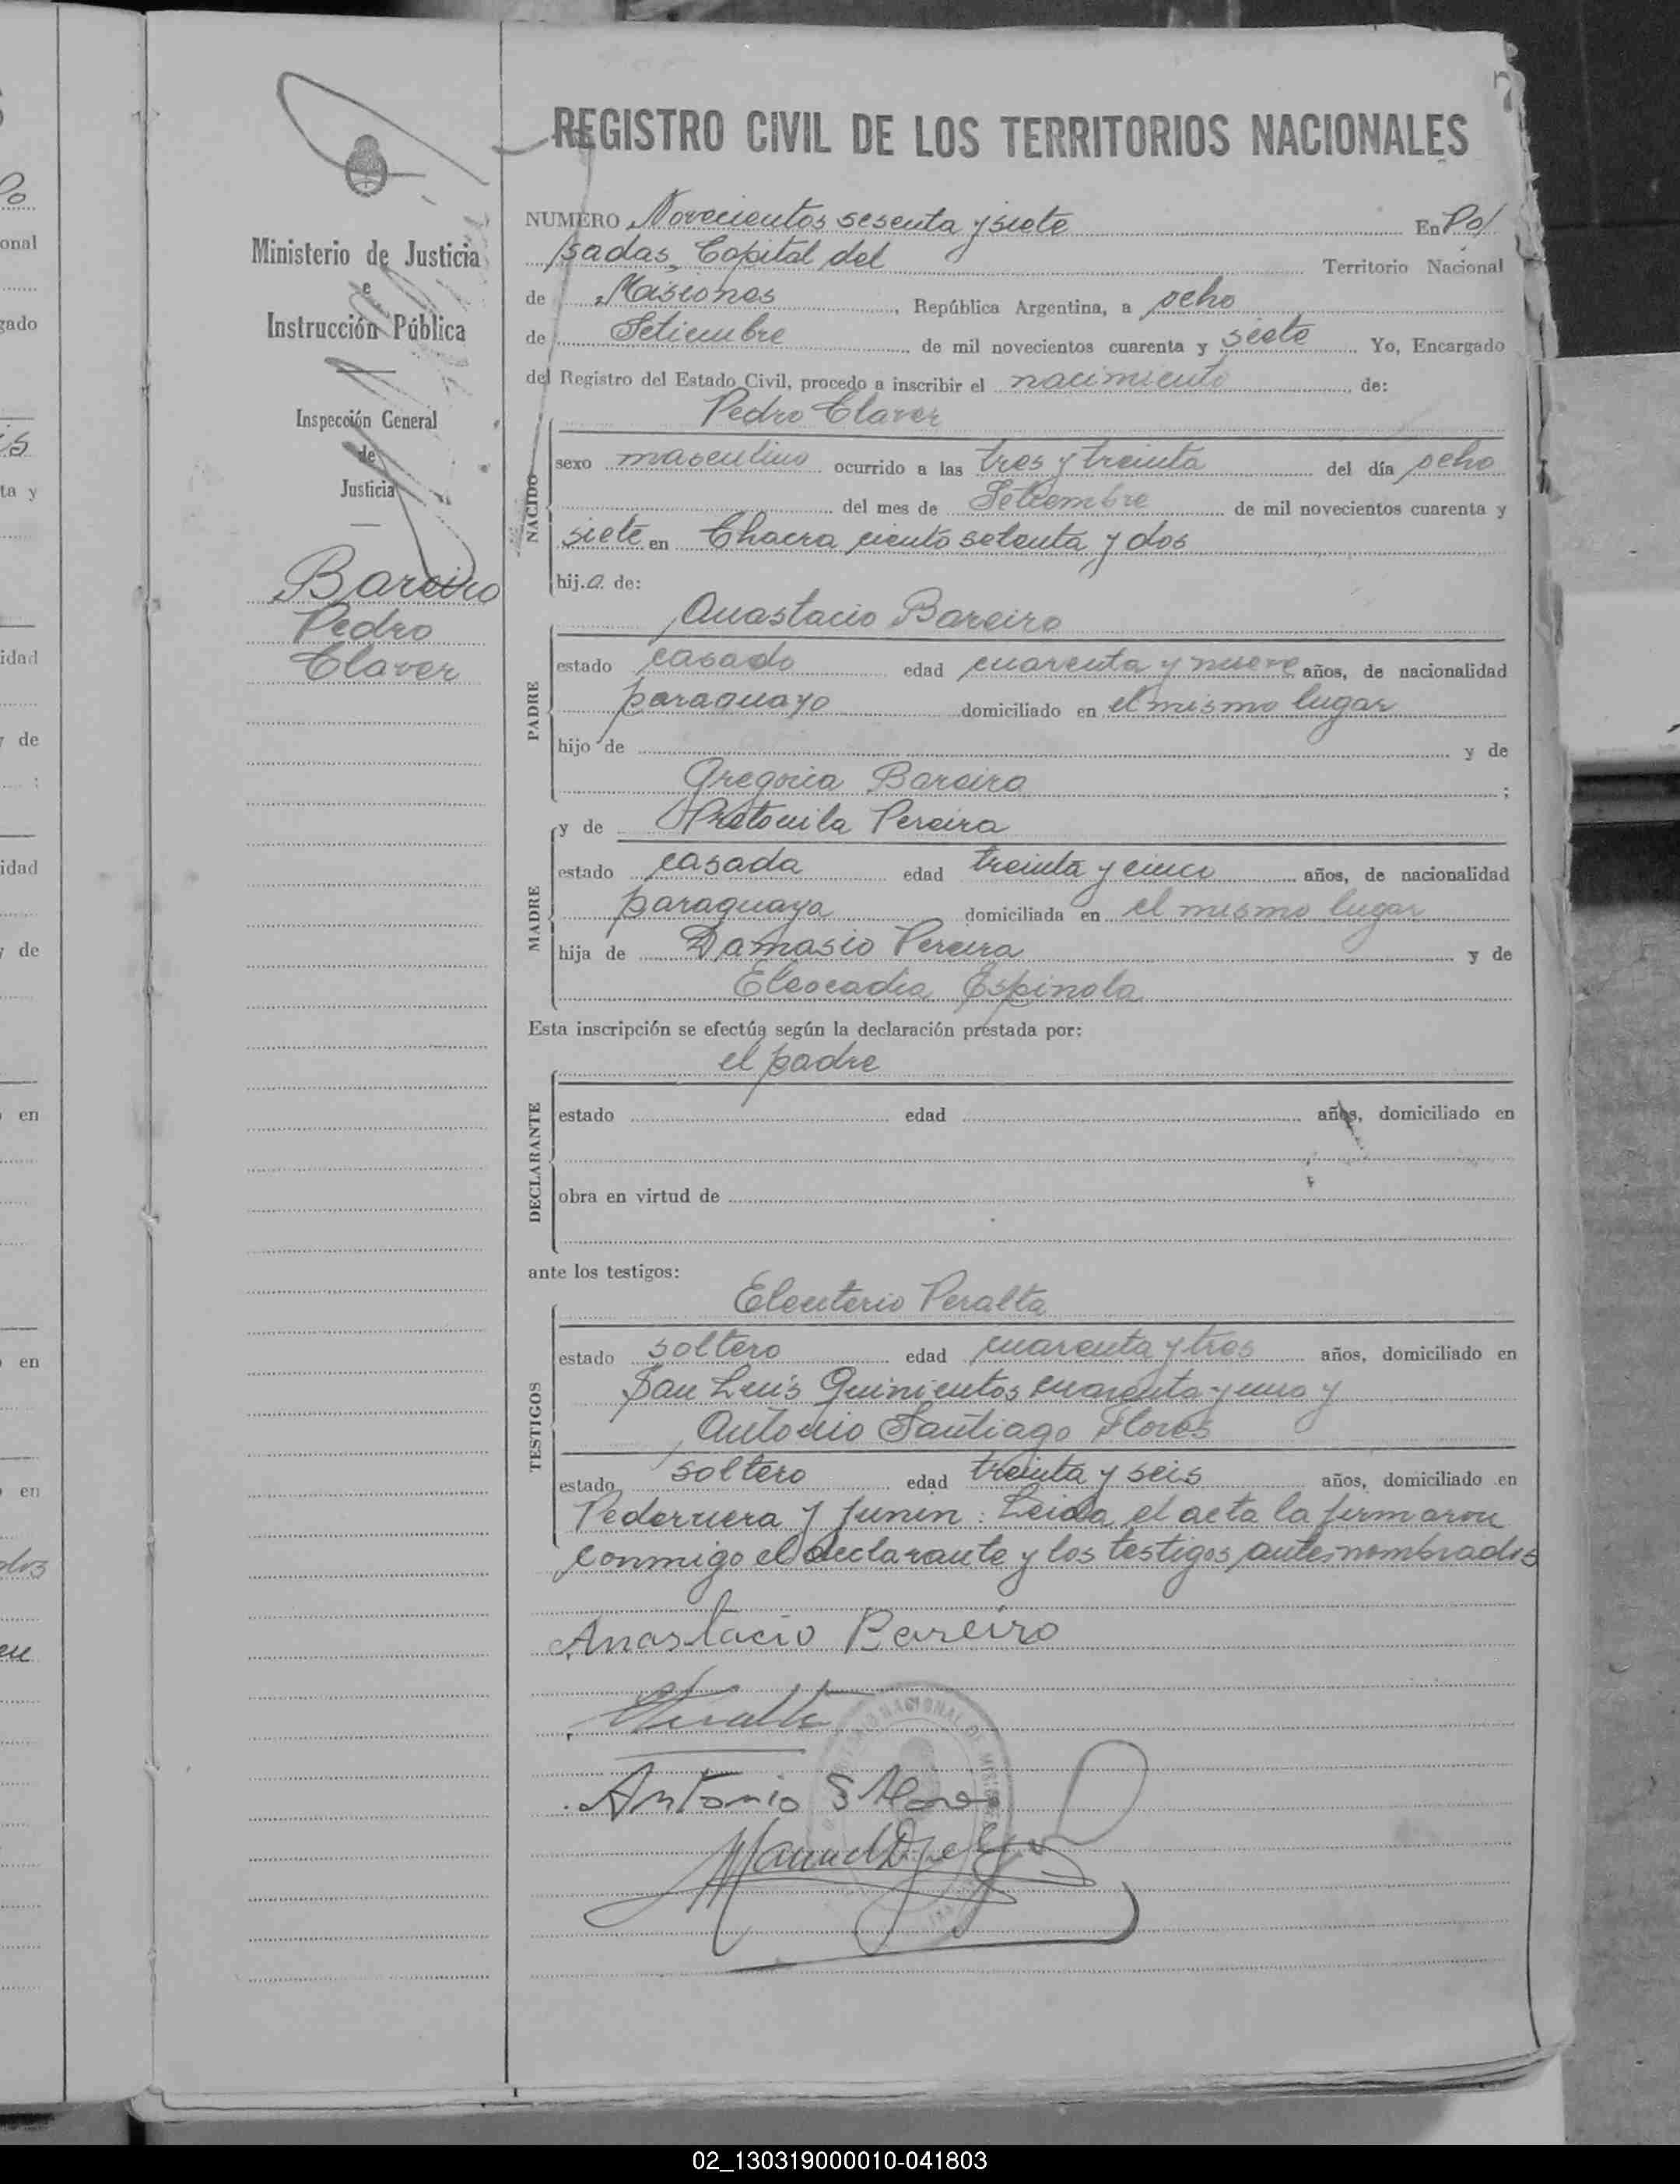 REGISTRO CIVIL DE LOS TERRITORIOS NACIONALES
Ministerio de Justicia
e
Instrucción Pública
Inspección General
de
Justicia
Bareiro
Pedro
Claver
NUMERO Novecientos sesenta y siete En Po/
sadas, Capital del Territorio Nacional
de Misiones, República Argentina, a ocho
de Setiembre de mil novecientos cuarenta y siete Yo, Encargado
del Registro del Estado Civil, procedo a inscribir el nacimiento de:
NACIDO
Pedro Claver
sexo masculino ocurrido a las tres y treinta del día ocho
del mes de Setiembre de mil novecientos cuarenta y
siete en Chacra ciento setenta y dos
hij.o de:
PADRE
Anastacio Bareiro
estado casado edad cuarenta y nueve años, de nacionalidad
paraguayo domiciliado en el mismo lugar
hijo de y de
Gregoria Bareiro ;
MADRE
y de Pereira
estado casada edad treinta y cinco años, de nacionalidad
paraguaya domiciliada en el mismo lugar
hija de Damasio Pereira y de
Eleocadia Espinola
Esta inscripción se efectúa según la declaración prestada por:
DECLARANTE
el padre
estado edad años, domiciliado en
obra en virtud de
ante los testigos:
TESTIGOS
Eleuterio Peralta
estado soltero edad cuarenta y tres años, domiciliado en
San Luis Quinientos cuarenta y uno y
Antonio Santiago Flores
estado soltero edad treinta y seis años, domiciliado en
Pedernera y Junin. Leida el acta la firmaron
conmigo el declarante y los testigos antes nombrados
Anastacio Bareiro
Peralta
Antonio S Flores
02_130319000010-041803